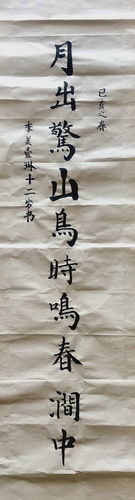 己亥之春
月出驚山鳥時鳴春澗中
李美蓉琳十二岁书